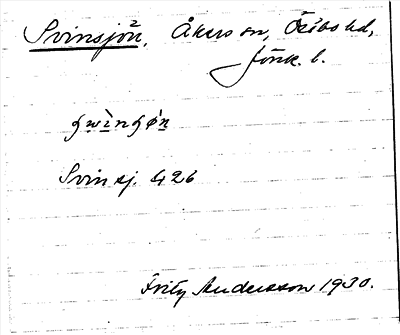 Svinsjön, Åkers sn, Östbo hd,
Jönk. l.
Svinsj. 426
Fritz Andersson 1930.